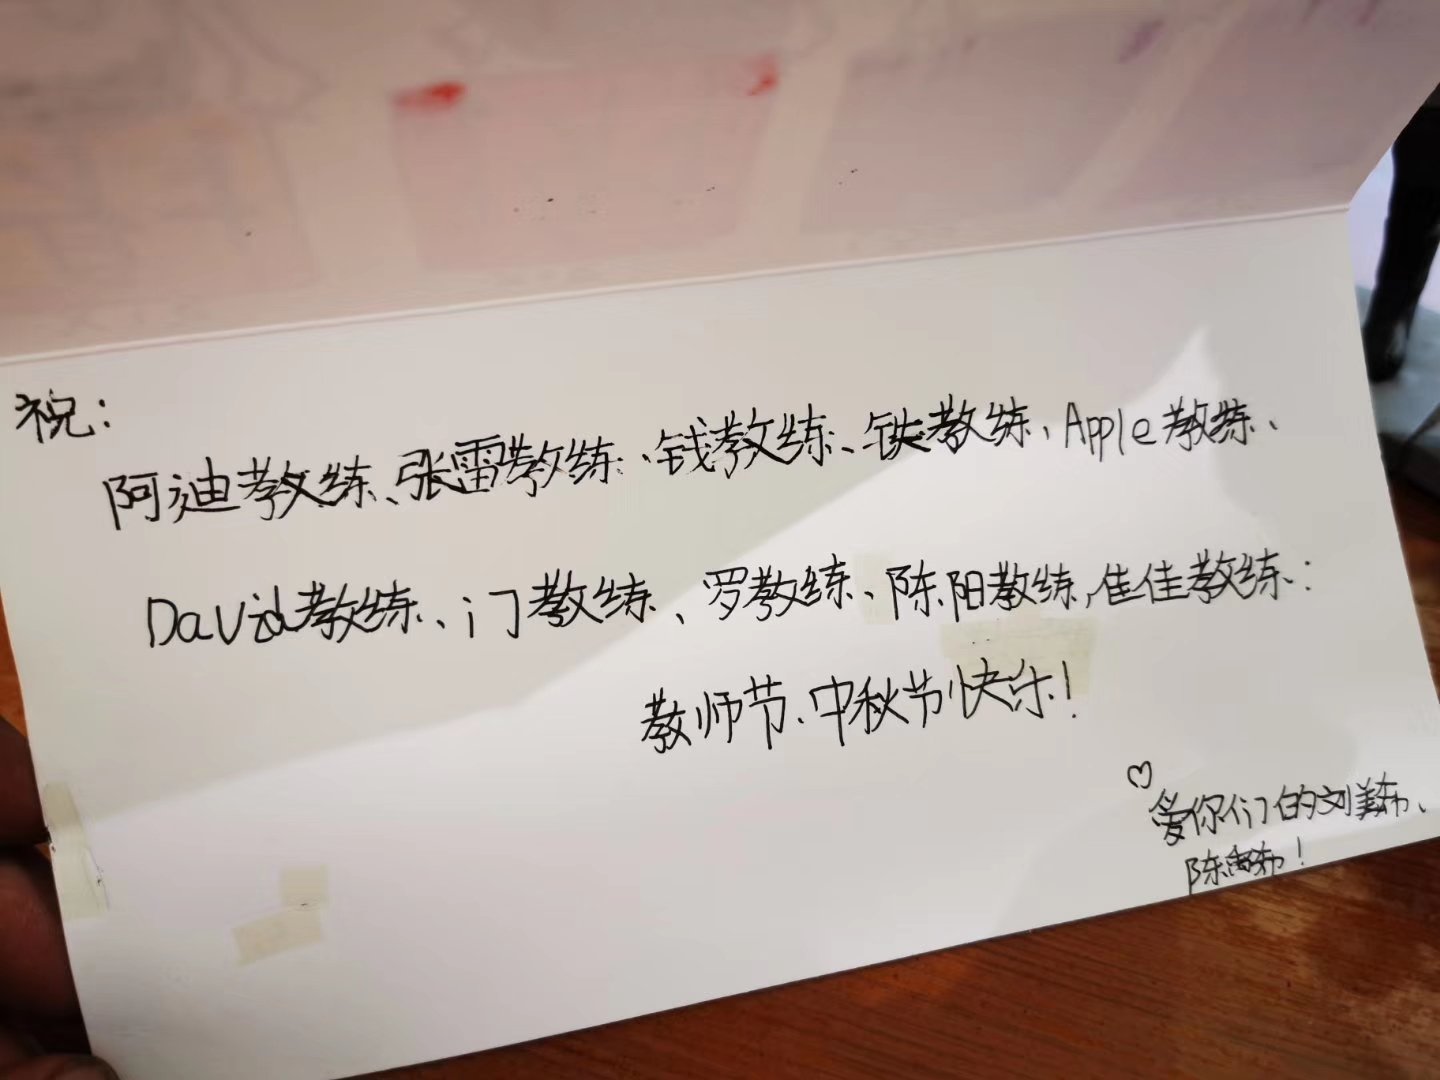 祝：
阿迪教练、张雷教练、钱教练、铁教练、Apple教练、
David教练、门教练、罗教练、陈阳教练，佳佳教练：
教师节、中秋节快乐！
♡爱你们的刘
陈！